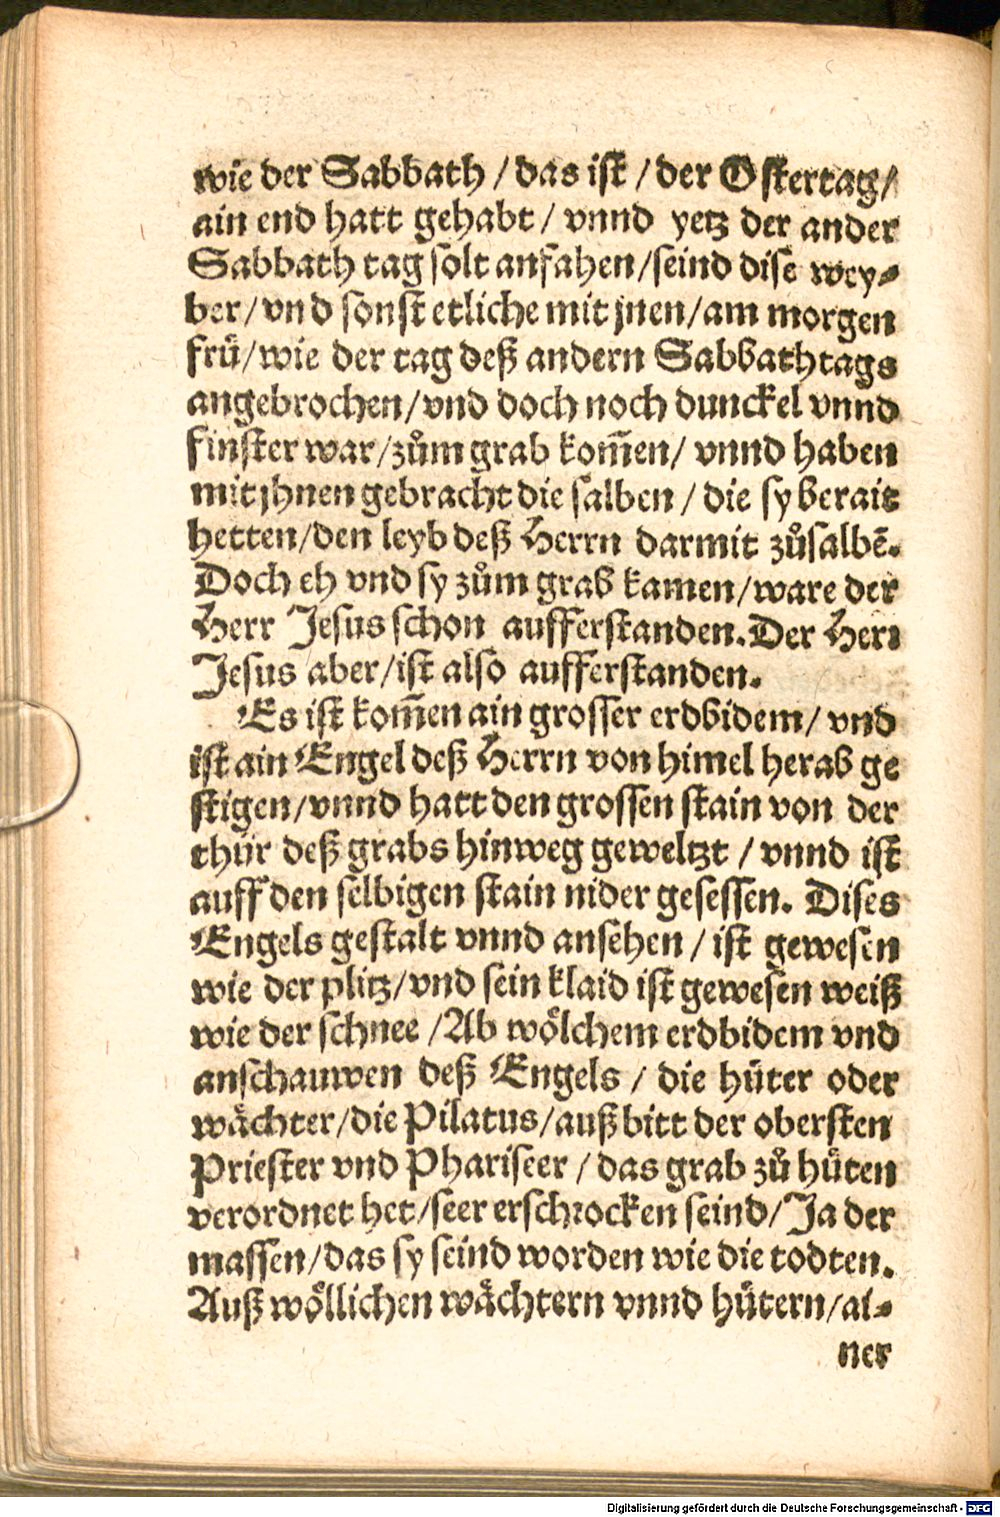 wie der Sabbath / das ist / der Ostertag /
ain end hatt gehabt / vnnd yetz der ander
Sabbath tag solt anfahen / seind dise wey⸗
ber / vnd sonst etliche mit jnen / am morgen
frü / wie der tag deß andern Sabbathtags
angebrochen / vnd doch noch dunckel vnnd
finster war / zům grab kom̃en / vnnd haben
mit jhnen gebracht die salben / die sy berait
hetten / den leyb deß Herrn darmit zůsalbẽ.
Doch eh vnd sy zům grab kamen / ware der
Herr Jesus schon aufferstanden. Der Herr
Jesus aber / ist also aufferstanden.
Es ist kom̃en ain grosser erdbidem / vnd
ist ain Engel deß Herrn von himel herab ge
stigen / vnnd hatt den grossen stain von der
thür deß grabs hinweg geweltzt / vnnd ist
auff den selbigen stain nider gesessen. Dises
Engels gestalt vnnd ansehen / ist gewesen
wie der plitz / vnd sein klaid ist gewesen weiß
wie der schnee / Ab wölchem erdbidem vnd
anschauwen deß Engels / die hüter oder
wächter / die Pilatus / auß bitt der obersten
Priester vnd Phariseer / das grab zů hüten
verordnet het / seer erschrocken seind / Ja der
massen / das sy seind worden wie die todten.
Auß wöllichen wächtern vnnd hütern / ai⸗
ner
Digitalisierung gefördert durch die Deutsche Forschungsgemeinschaft - DFG